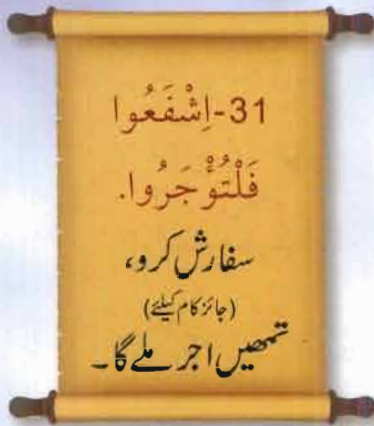 31-اِشْفَعُوا
فَلْتُؤْجَرُوا.
سفارش کرو،
(جائز کام کیلئے)
تمھیں اجر ملے گا۔